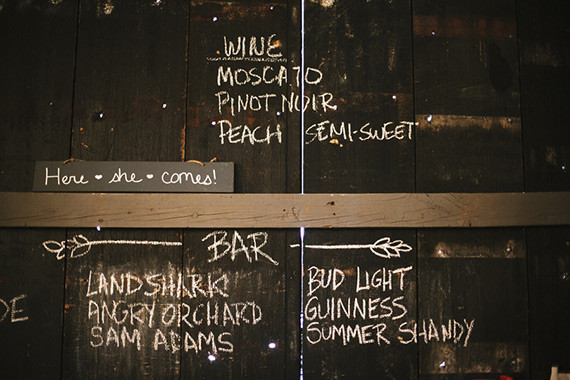 WINE
MOSCATO
PINOT NOIR
PEACH SEMI-SWEET
Here she comes!
BAR
LANDSHARK
ANGRY ORCHARD
SAM ADAMS
BUD LIGHT
GUINNESS
SUMMER SHANDY